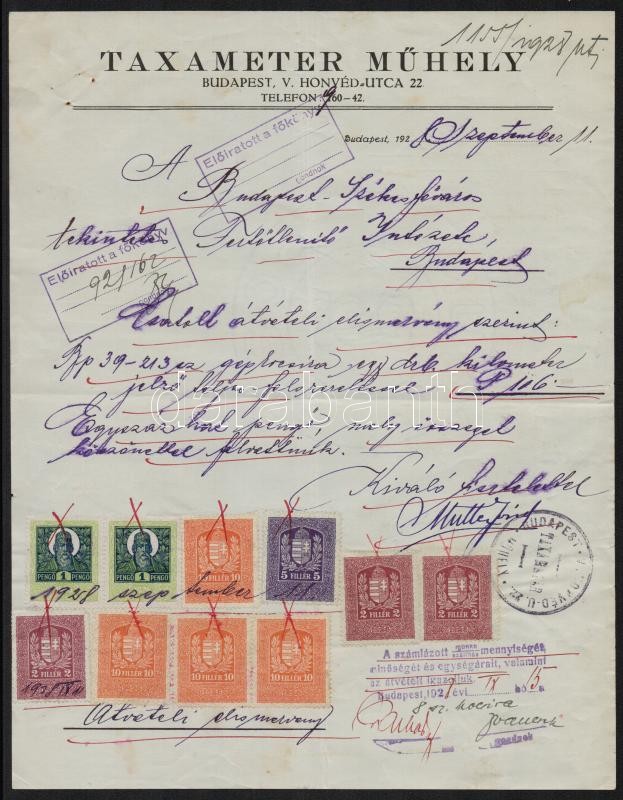 1155/1928
TAXAMETER MŰHELY
BUDAPEST, V. HONVÉD-UTCA 22.
TELEFON: 160-42.
Budapest, 1928 Szeptember 11.
Előiratott a főkönyv
gondnok
A
Budapest-Székesfőváros
tekintetes Fertőtlenítő Intézete,
Budapest
Előiratott a főkönyv
921/62
Csatolt átvételi elismervény szerint:
Bp 39-213 sz géptocsira egy drb. kilometer
jelző felszereléssel P 106.-
Egyszáz hat pengő, mely összeget
köszönettel felvettünk.
Kiváló tisztelettel
BUDAPEST, V. HONVÉD-U. 22.
PENGŐ 1 PENGŐ
PENGŐ 1 PENGŐ
10 FILLÉR 10
5 FILLÉR 5
2 FILLÉR 2
2 FILLÉR 2
1928 szeptember 11.
2 FILLÉR 2
10 FILLÉR 10
10 FILLÉR 10
10 FILLÉR 10
A számlázott mennyiségét,
minőségét és egységárait, valamint
az átvételt igazoljuk
Budapest, 192 évi IX hó 15
8 sz. kocsira
gondnok
Átvételi elismervény
darabanth